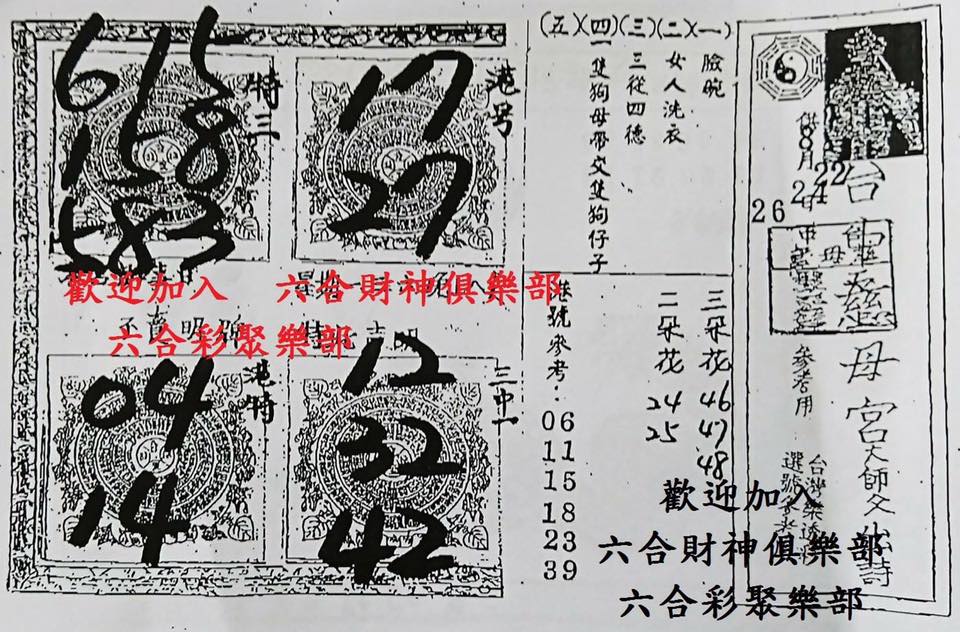 台
慈母宮大師父出詩
供8月24日
22
26
參考用
(五)(四)(三)(二)(一)
臉腕
女人洗衣
三從四德
一隻狗母帶父隻狗仔子
三朵花 46 47 48
二朵花 24 25
港號參考:
06
11
15
18
23
39
港号
17
27
特三
615
158
583
歡迎加入 六合財神俱樂部
六合彩聚樂部
三中一
12
32
42
港特
04
14
歡迎加入
六合財神俱樂部
六合彩聚樂部